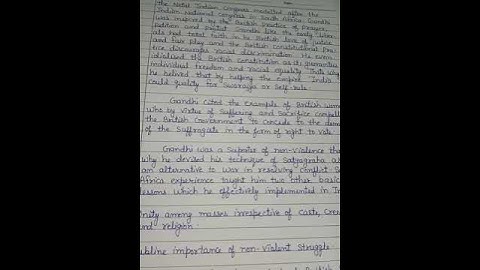 the Natal Indian Congress modelled after the
Indian National Congress in South Africa. Gandhi
was inspired by the British practice of prayer,
petition and protest. Gandhi like the early liber-
als had total faith in the British love of justice
and fair play and the British constitutional Pra-
ctice discourages racial discrimination. He even
idolised the British constitution as it, guarantees
individual freedom and racial equality. That's why
he belived that by helping the empire India
could qualify for Swarajya or Self-rule.
Gandhi cited the example of British wome
who by virtue of Suffering and Sacrifice compell
the British Government to concede to the dema
of the Suffragists in the form of right to vote.
Gandhi was a Supporter of non-violence tha
why he devised his technique of Satyagraha as
an alternative to war in resolving conflict. So
Africa experience taught him two other basic
lessons which he effectively implemented in In
unity among masses irrespective of Caste, Cree
and religion.
importance of non-violent Struggle
British